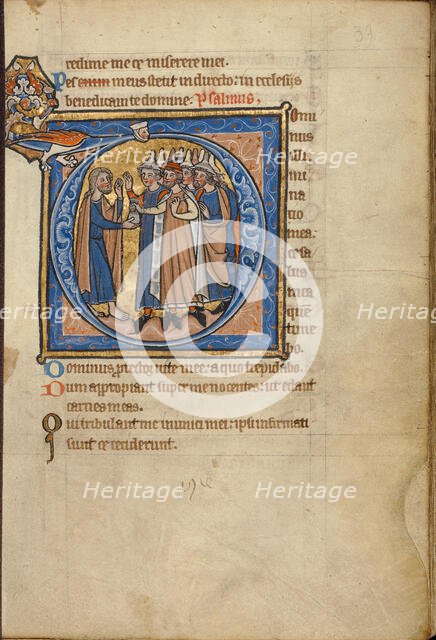 39
redime me et miserere mei.
Pes enim meus stetit in directo: in ecclesiis
benedicam te domine: Psalmus,
omi
nus
illu
mi
na
tio
mea:
et sa
lus
mea
quē
time
bo.
Dominus ptector uite mee: a quo trepidabo.
Dum appropiant super me nocentes: ut edant
carnes meas.
Qui tribulant me inimici mei: ipsi infirmati
sunt et ceciderunt.
Heritage Heritage Heritage
Heritage Heritage Heritage
images
Heritage Heritage Heritage